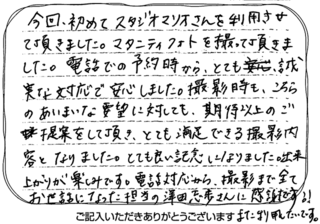 今回、初めてスタジオマリオさんを利用させ
て頂きました。マタニティフォトを撮って頂きま
した。電話での予約時から、とても誠
実な対応で安心しました。撮影時も、こちら
のあいまいな要望に対しても、期待以上のご
提案をして頂き、とても満足できる撮影内
容となりました。とても良い記念になりました。出来
上がりが楽しみです。電話対応から、撮影まで全て
お世話になった担当の澤田志歩さんに感謝です!!
ご記入いただきありがとうございます また利用したいです。